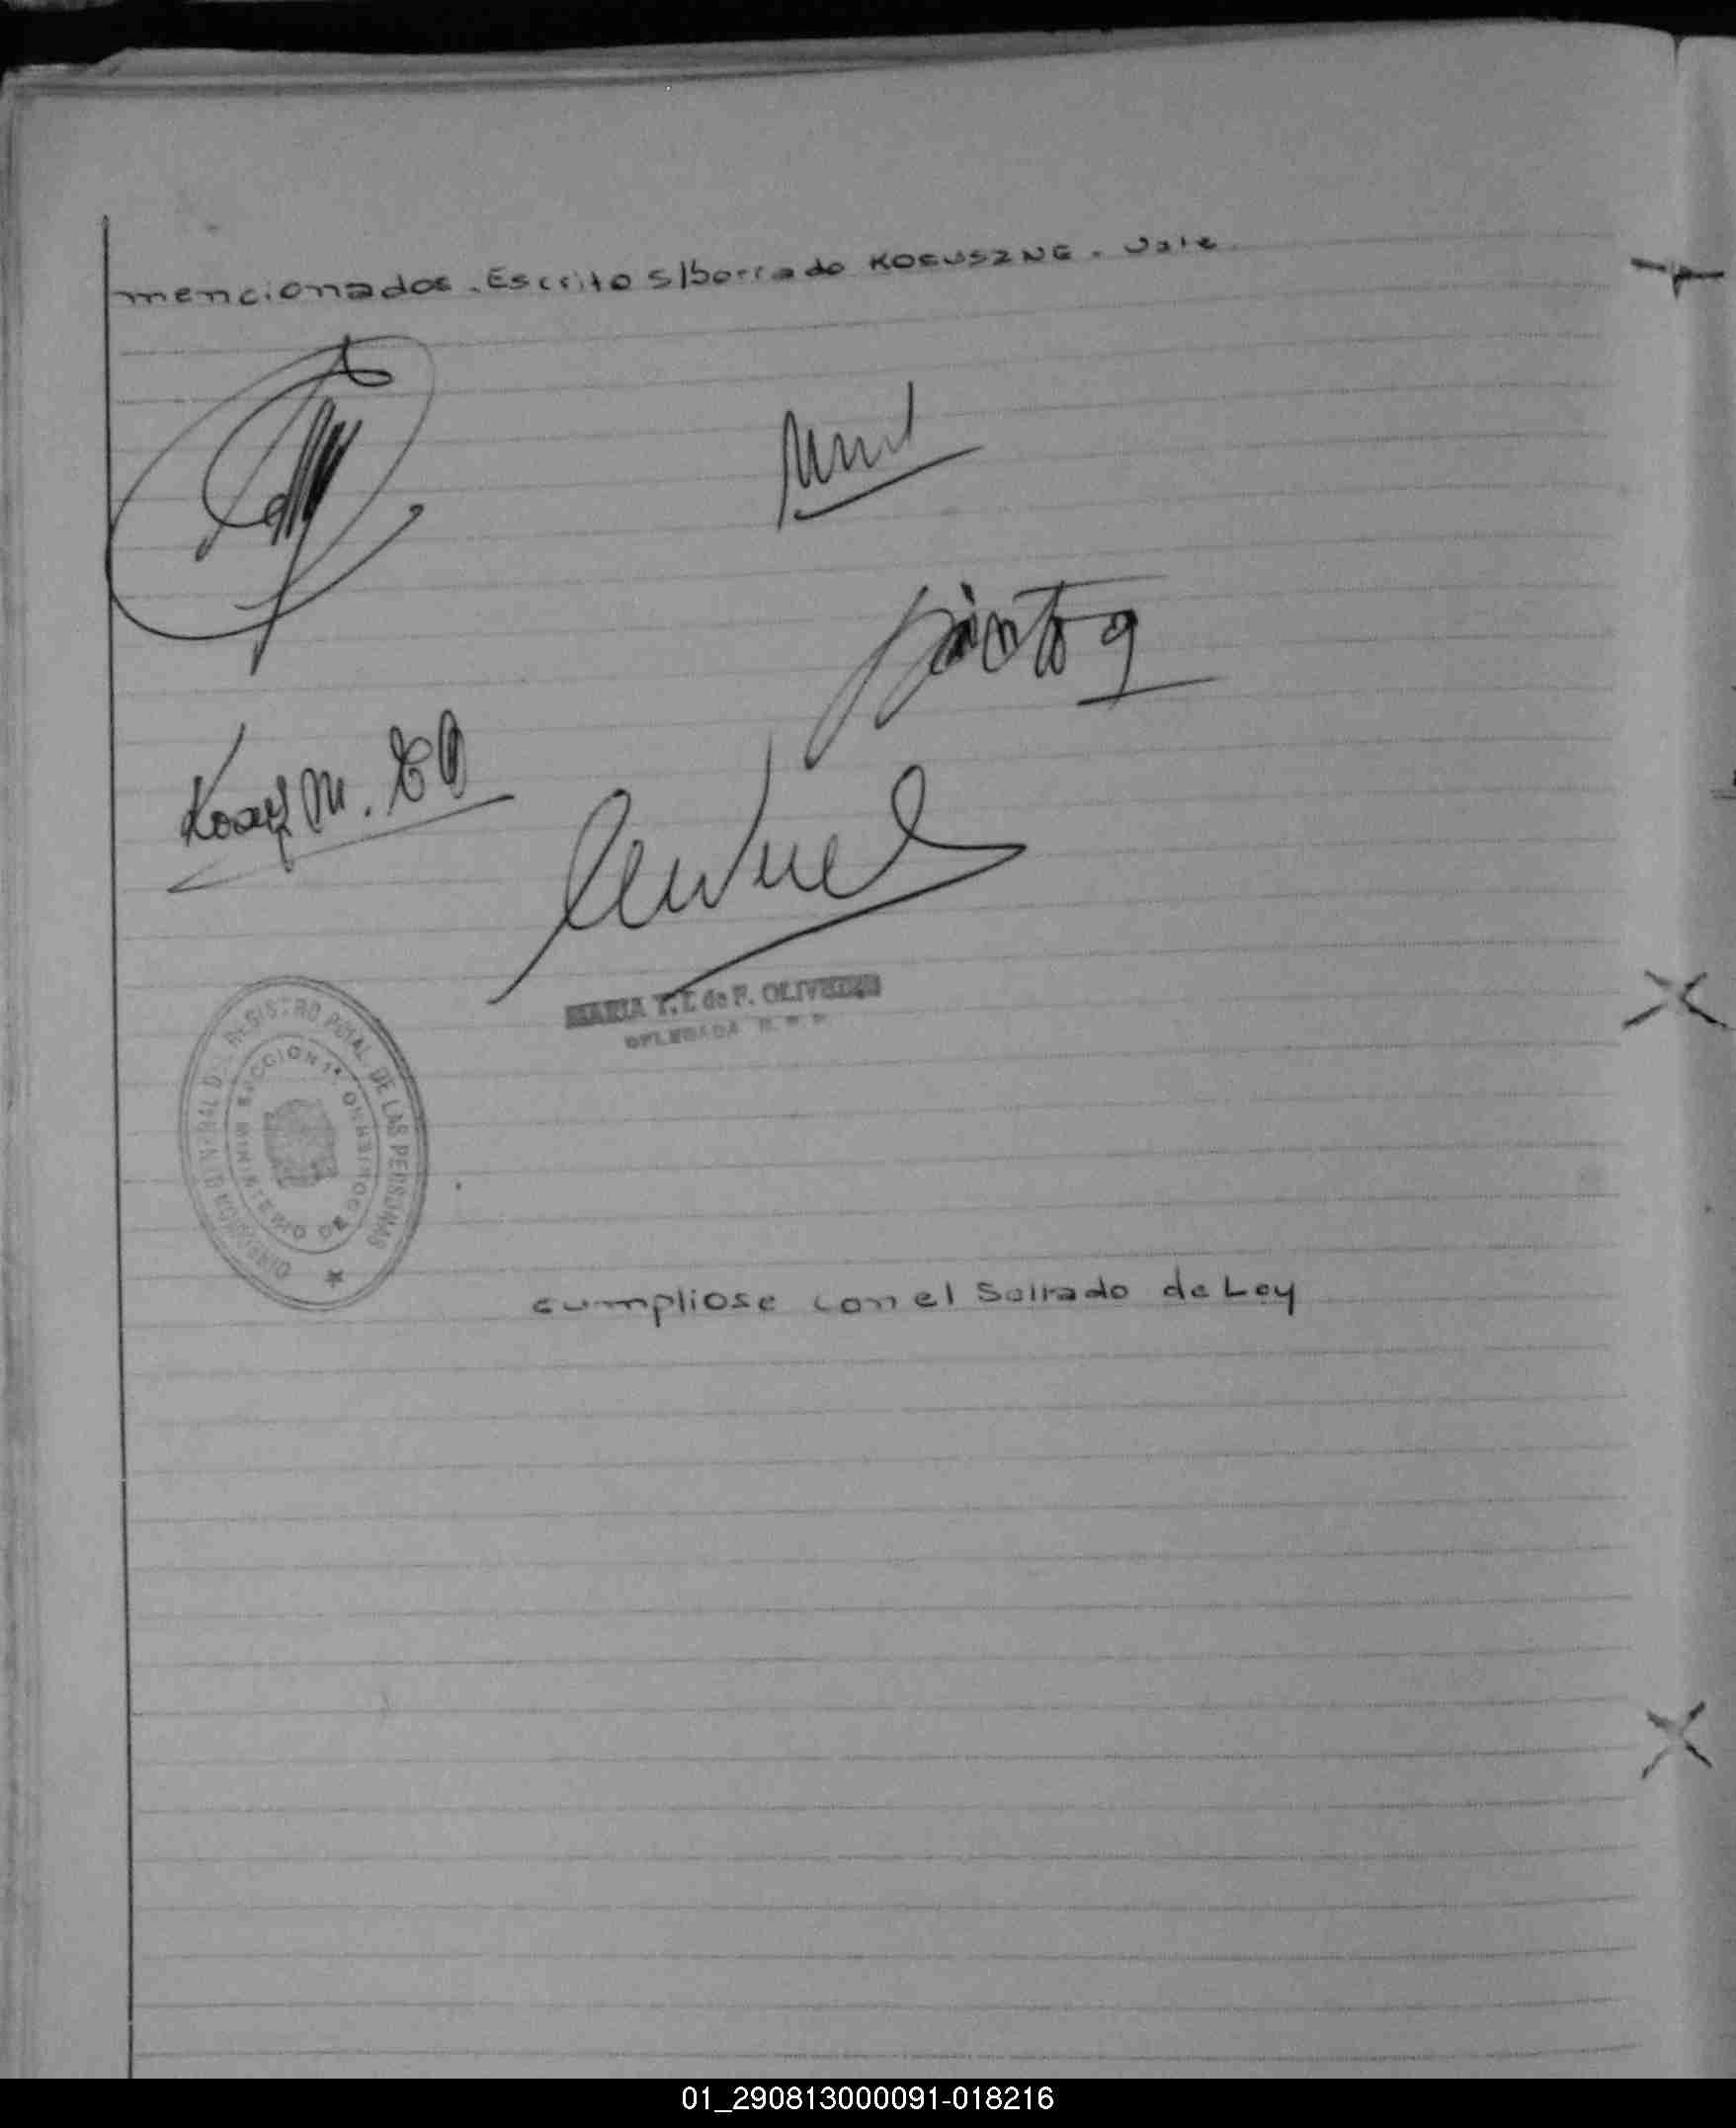 mencionados. Escrito s/borrado KOSUSZNE. Vale.
Kosuz M.
MARIA T. I. de F. OLIVEIRA
DELEGADA R. P. P.
DIRECCION GENERAL DEL REGISTRO PCIAL DE LAS PERSONAS
SECCION 1ª
MINISTERIO DE GOBIERNO
cumpliose con el Sellado de Ley
01_290813000091-018216